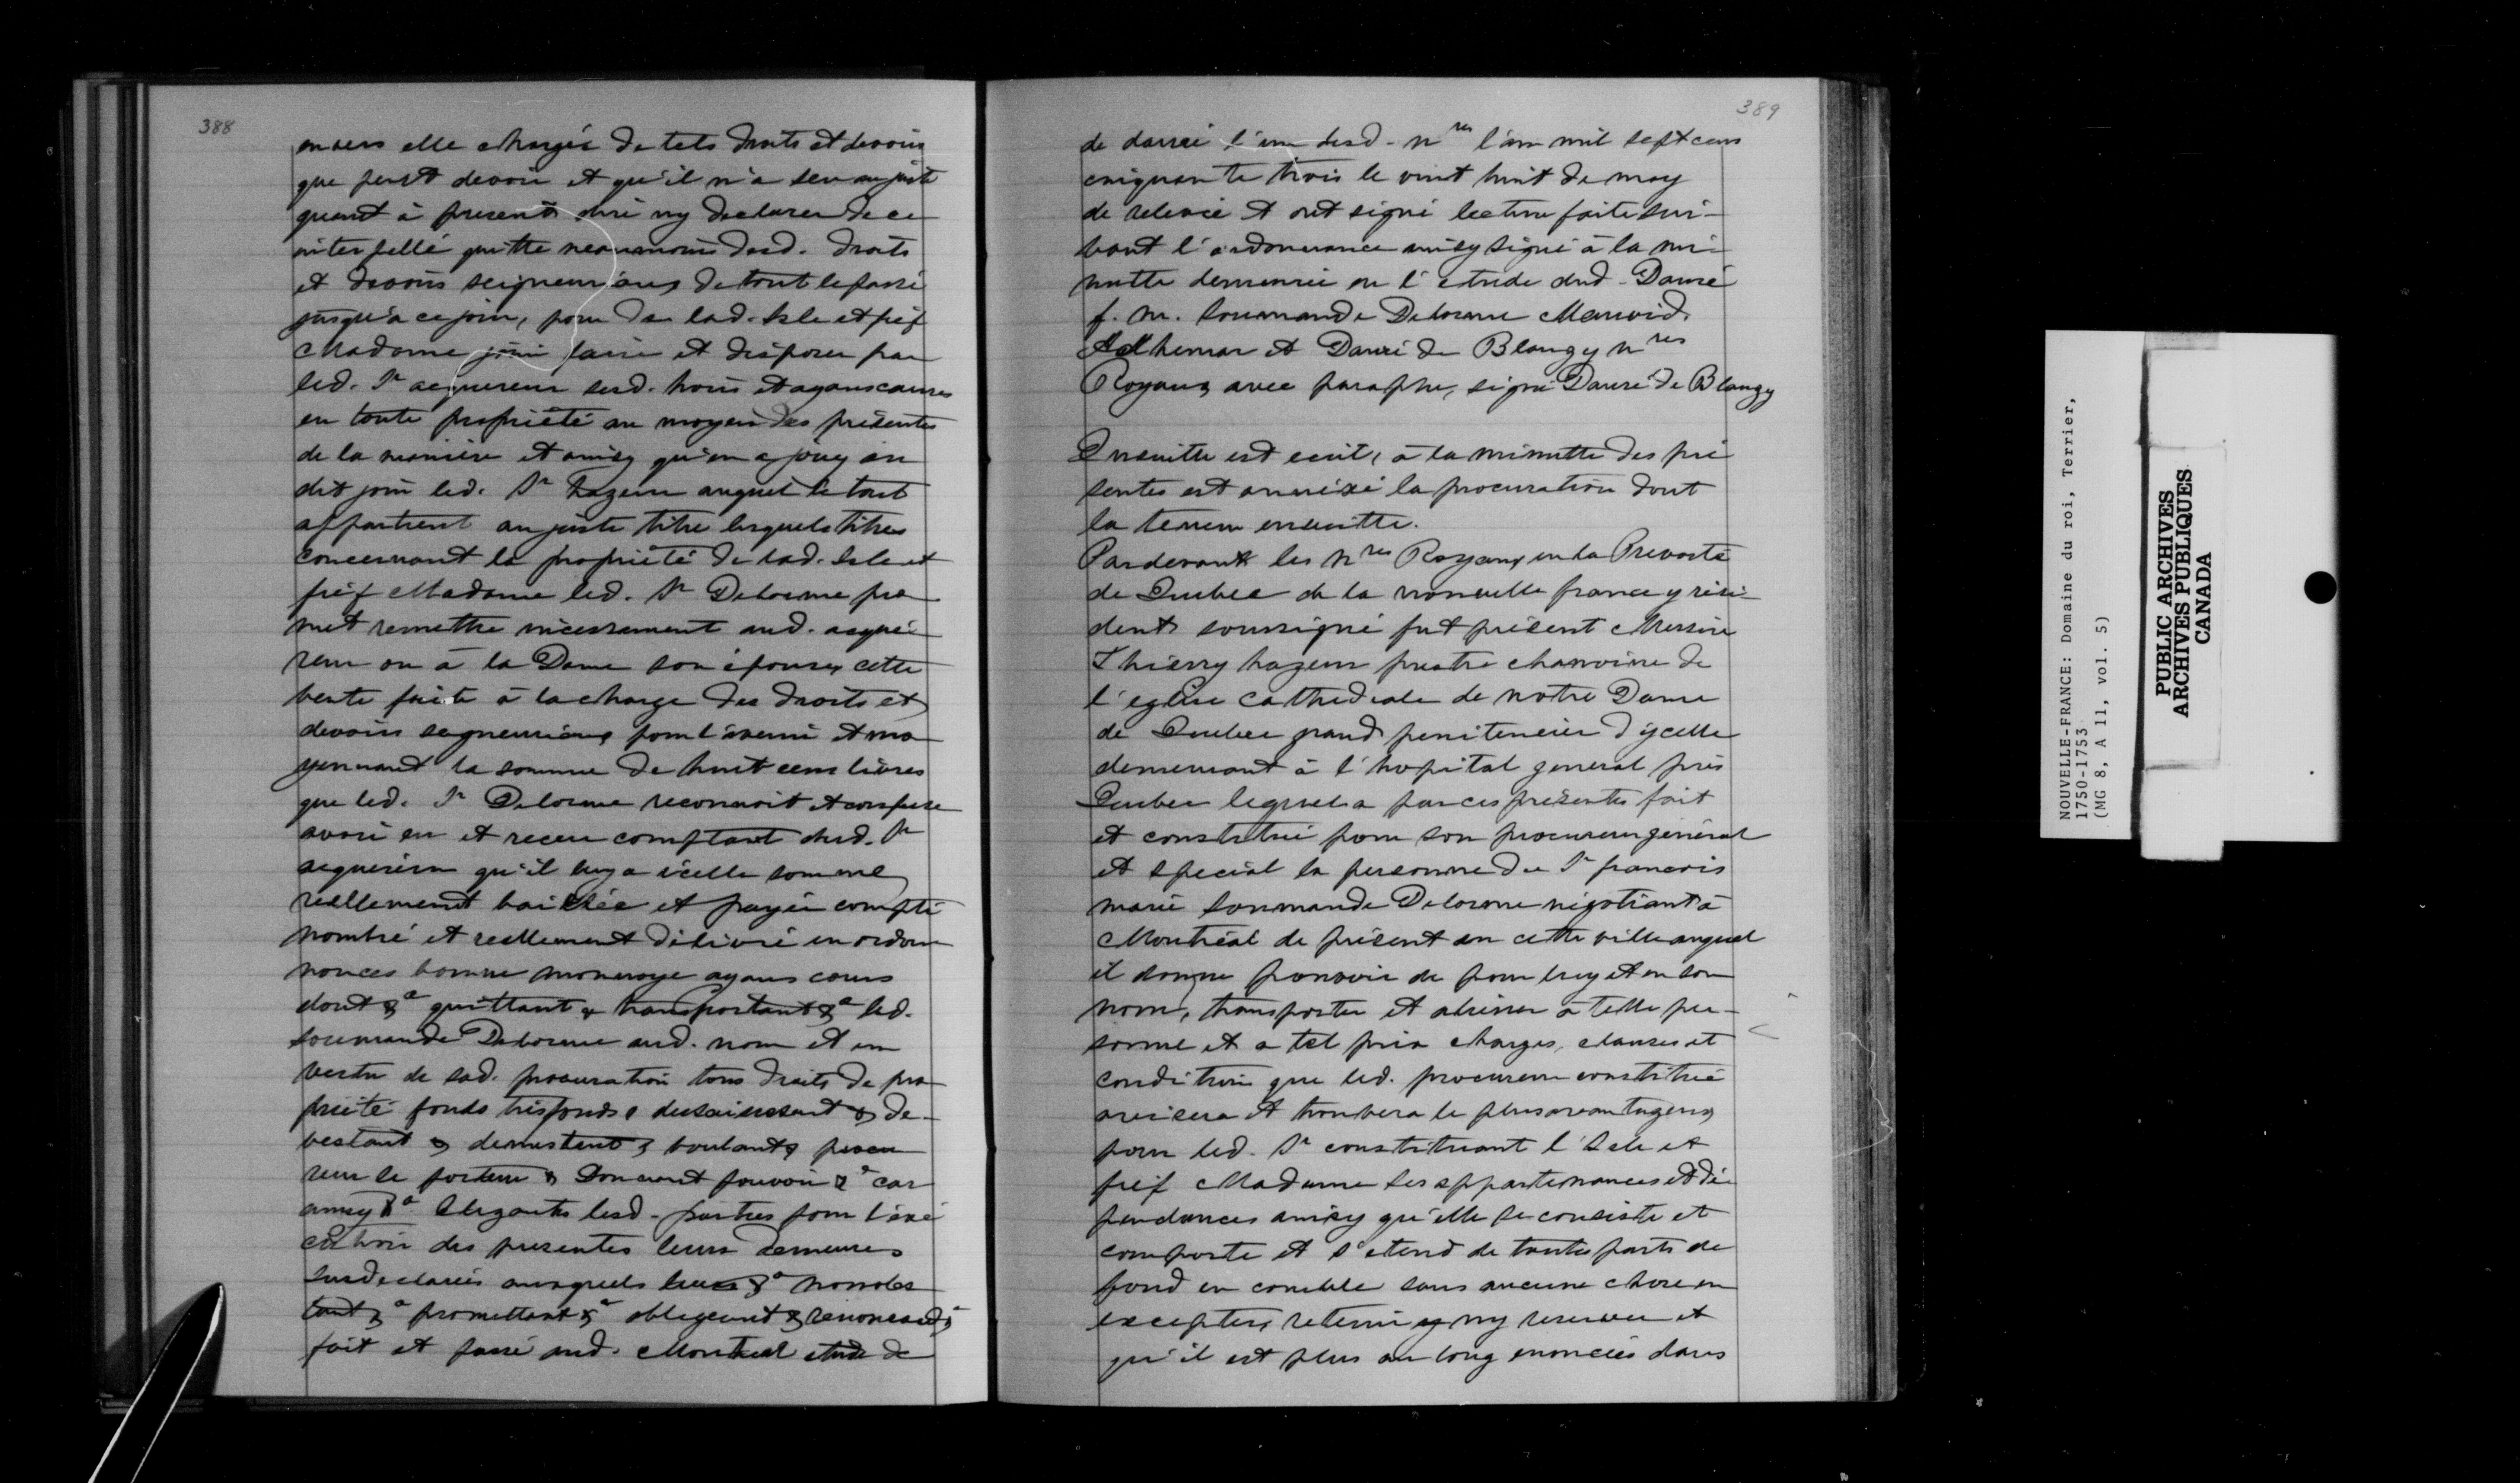 388
envers elle chargée de tels droits et devoirs
que peust devoir et qu'il n'a sceu au juste
quant à present dire ny declarer de ce
interpellé quitte neanmoins desd. droits
et devoirs seigneuriaux de tout le passé
jusqu'à ce jour, pour de lad. Isle et fief
Madame jouir faire et disposer par
led. Sr acquereur sesd. hoirs et ayans causes
en toute propriété au moyen des présentes
de la manière et ainsy qu'en a jouy ou
dit jouir led. Sr hazeur auquel le tout
appartient au juste titre lesquels titres
concernant la propriété de lad. Isle et
fief Madame led. Sr Delorme pro
met remettre incessament aud. acqué
reur ou à la Dame son épouse, cette
vente faite à la charge des droits et
devoirs segneuriaux pour l'avenir et mo
yennant la somme de huit cens livres
que led. Sr Delorme reconnoit et confesse
avoir eu et receu comptant dud. Sr
acquereur qu'il luy a icelle somme
réellement baillée et payée compté
nombré et réellement délivré en ordon
nances bonne monnoye ayans cours
dont &a quittant & transportant &a led.
Soumande Delorme aud. nom et en
vertu de sad. procuration tous droits de pro
priété fonds tresfonds & dessaisissant & de-
vestant & demettant & voulant & procu
reur le porteur & Donnant pouvoir &a car
ainsy &a obligeantes lesd. parties pour l'exé
cution des presentes leurs demeures
susdeclarées auxquels lieux &a nonobs
tant &a promettant &a obligeant & renonceant &a
fait et passé aud. Montreal etude de
389
de danré l'un desd. nres l'an mil sept cens
cinquante trois le vint huit de may
de relevée et ont signé lecture faite sui-
vant l'ordonnance ainsy signé à la mi-
nutte demeurée en l'etude dud. Danré
f. m. Soumande Delorme
Adhemar et Danré de Blangy nres
Royaux avec paraphe, signé Danré de Blangy
Ensuitte est ecrit, à la minutte des pré
sentes est annéxé la procuration dont
la teneur ensuitte.
Pardevant les nres Royaux en la Prevosté
de Quebec de la nouvelle france y rési-
dents soussigné fut présent Messire
Thierry hazeur prestre chanoine de
l'eglise Cathedrale de notre Dame
de Quebec grand penitencier d'ycelle
demeurant à l'hopital general près
Quebec lequel a par ces présentes fait
et constitué pour son procureur général
et special la personne du Sr francois
marie Soumande Delorme négotiant à
Montréal de présent en cette ville auquel
il donne pouvoir de pour luy et en son
nom, transporter et aliener à telle per-
sonne et a tel prix charges, clauses et
conditions que led. procureur constitué
avisera et trouvera le plus avantageux
pour led. Sr constituant l'Isle et
fief Madame ses appartenances et dé
pendances ainsy qu'elle se consiste et
comporte et s'etend de toutes parts de
fond en comble sans aucune chose en
excepter, retenir ny reserver et
qu'il est plus au long enoncées dans
NOUVELLE-FRANCE: Domaine du roi, Terrier,
1750-1753
(MG 8, A 11, vol. 5)
PUBLIC ARCHIVES
ARCHIVES PUBLIQUES
CANADA